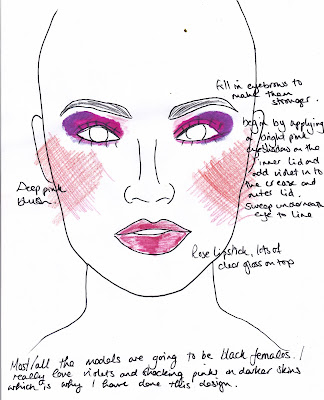 fill in eyebrows to
make them
stronger.
begin by applying
a bright pink
eyeshadow on the
inner lid and
add violet in to
the crease and
outer lid.
Sweep underneath
eye to line
Deep pink
blush
Rose lipstick, lots of
clear gloss on top
Most/all the models are going to be black females. I
really love violets and shocking pinks on darker skins
which is why I have done this design.